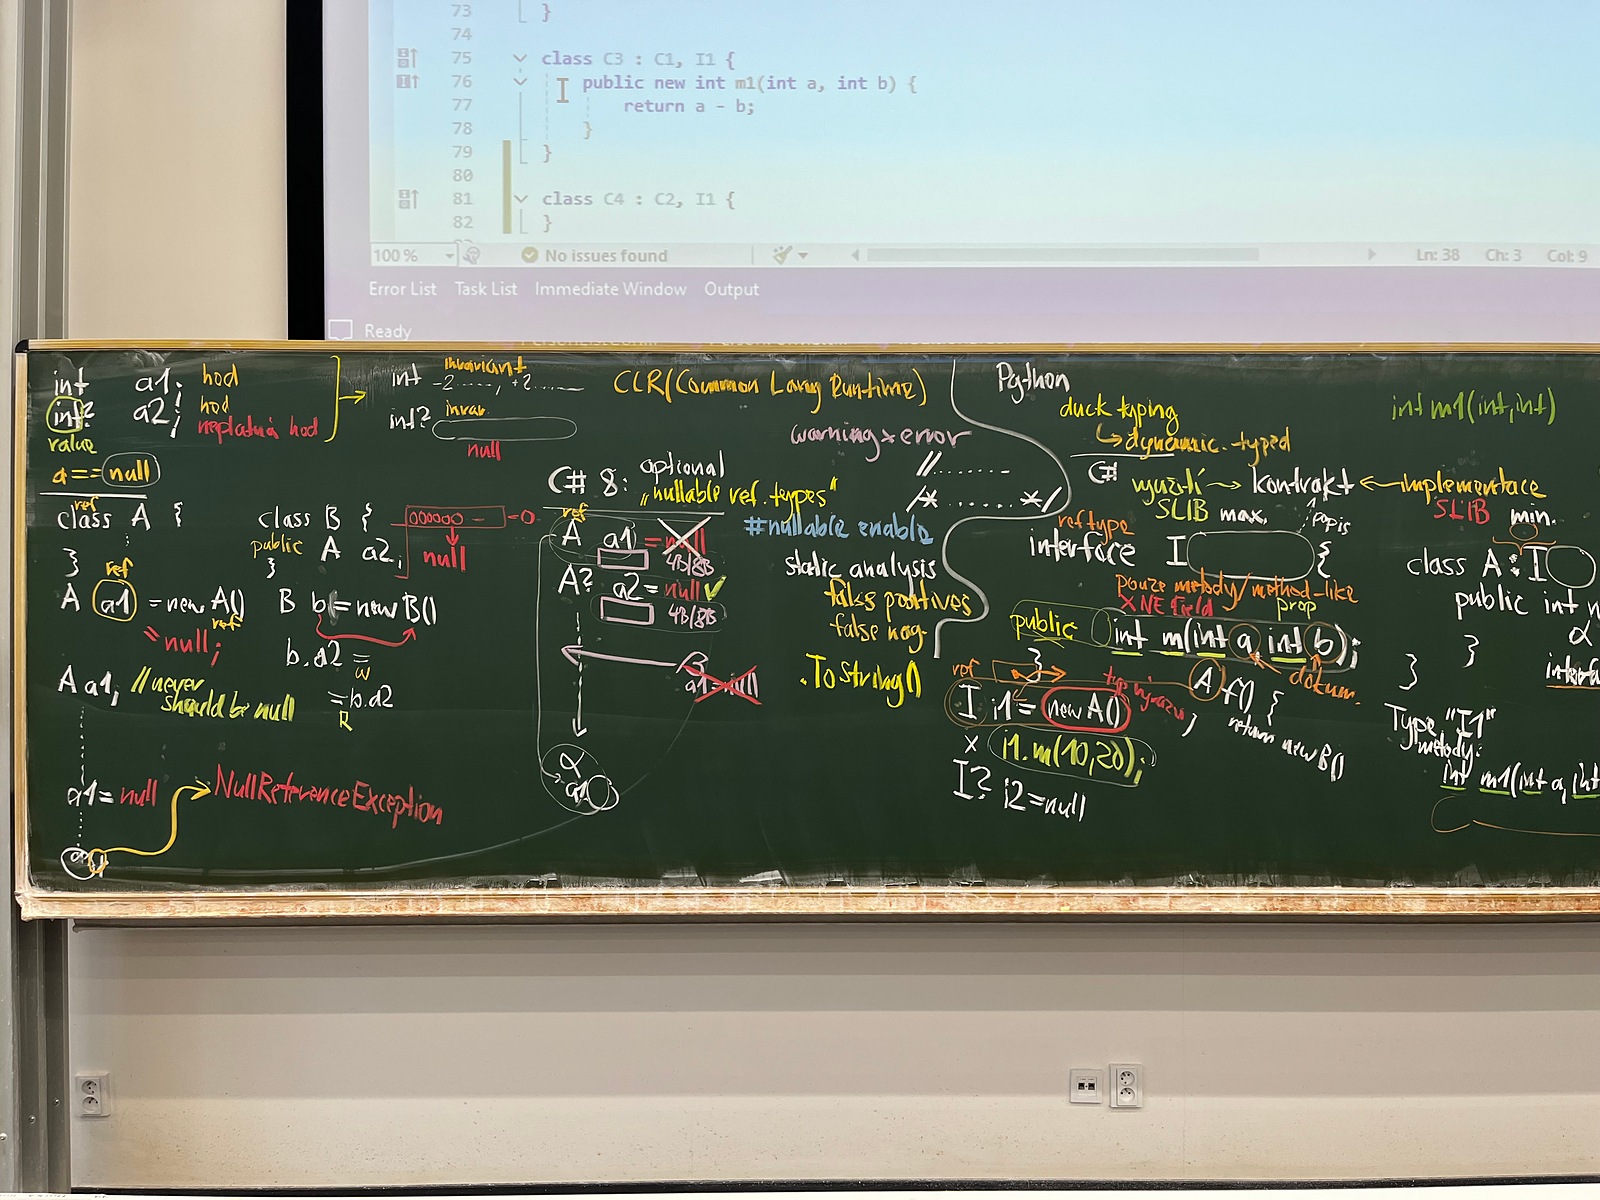 73 }
74
75 class C3 : C1, I1 {
76 public new int m1(int a, int b) {
77 return a - b;
78 }
79 }
80
81 class C4 : C2, I1 {
82 }
100 %
No issues found
Ln: 38 Ch: 3 Col: 9
Error List Task List Immediate Window Output
Ready
int a1; hod
int? a2; hod
neplatná hod
value
a == null
ref
class A {
}
ref
A a1 = new A()
= null;
A a1; // never
should be null
a1 = null
NullReferenceException
int
invariant
-2......, +2......
int? invar.
null
class B {
public A a2;
}
000000 - = 0
null
ref
B b = new B()
b.a2 =
W
= b.a2
R
CLR (Common Lang Runtime)
warning x error
// ........
/* ........ */
C# 8: optional
"nullable ref. types"
#nullable enable
ref
A a1 = null
4B/8B
A? a2 = null
4B/8B
static analysis
false positives
false neg.
.ToString()
a1 = null
Python
duck typing
dynamic. typed
C#
využití → kontrakt ← implementace
SLIB max.
popis
SLIB min.
ref type
interface I {
pouze metody/method-like
X NE field
prop
public int m(int a, int b);
}
dokum.
ref
I i1 = new A();
typ výrazu
A f() {
return new B()
x i1.m(10,20);
I? i2 = null
int m1(int,int)
class A : I
public int
}
}
Type "I1"
metody:
int m1(int a, int